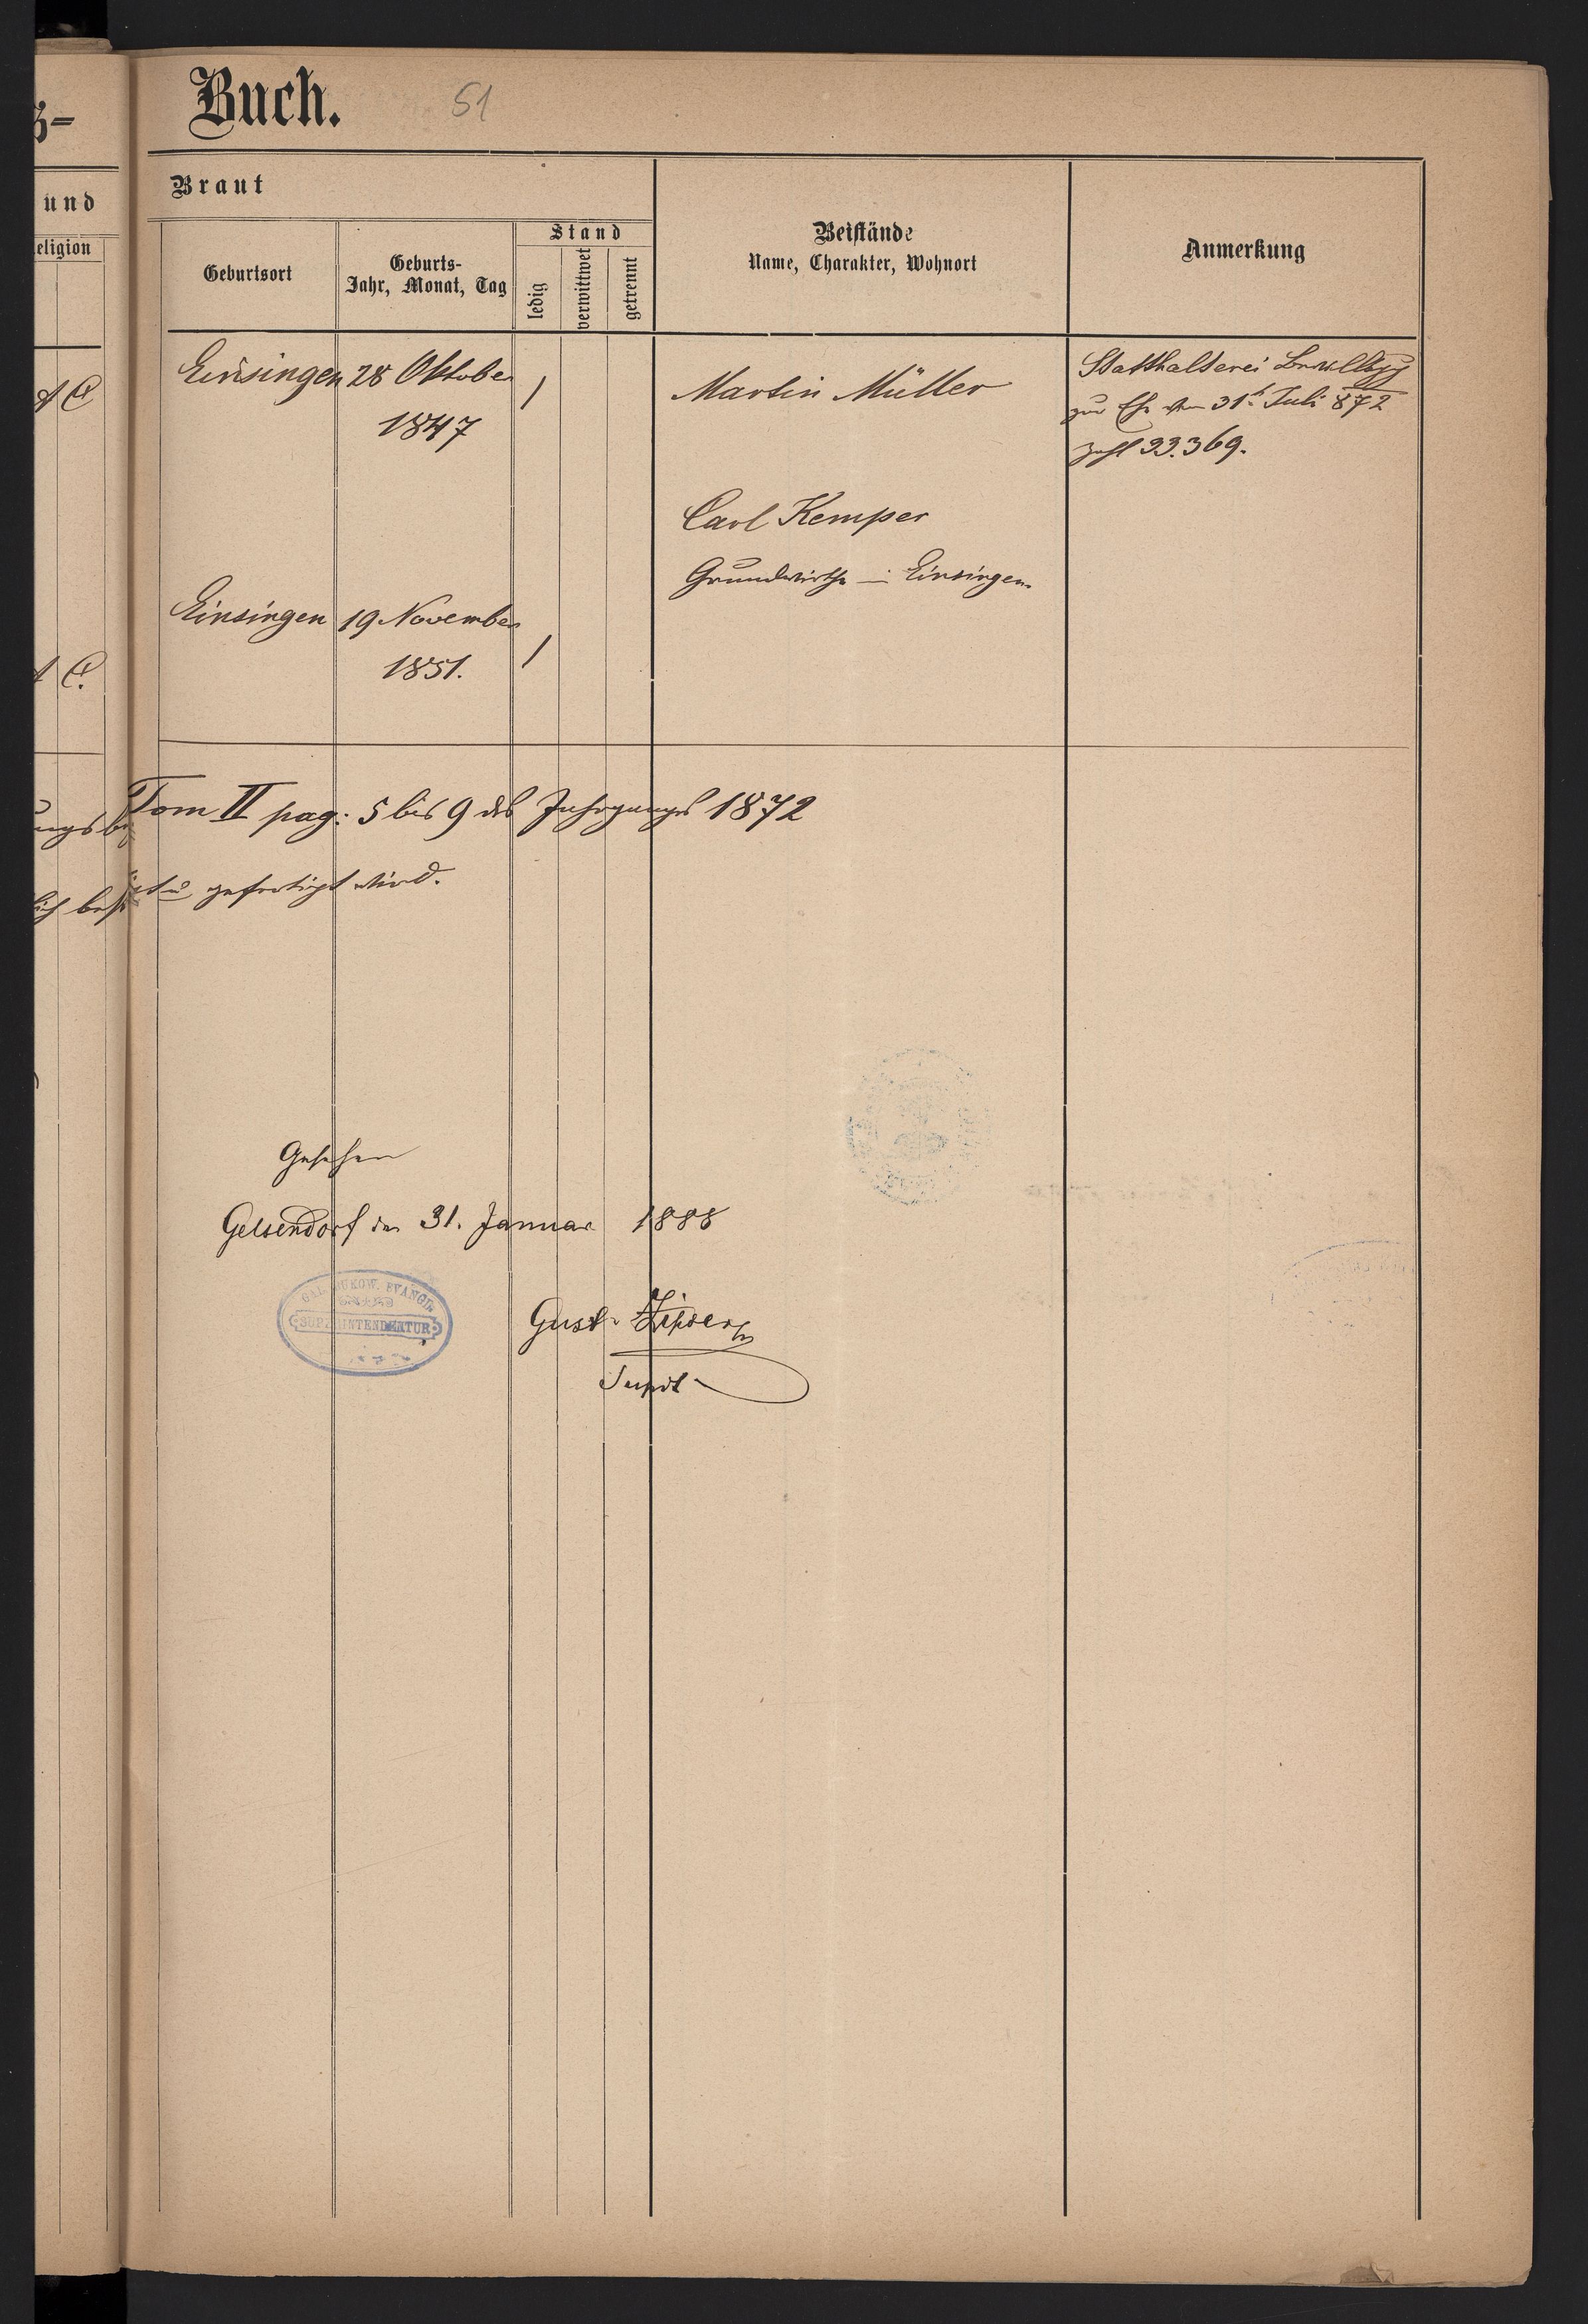 Buch.
51
und
eligion
Braut
Geburtsort
Geburts-
Jahr, Monat, Tag
Stand
ledig
verwittwet
getrennt
Beistände
Name, Charakter, Wohnort
Anmerkung
Einsingen 28 Oktober
1847
Martin Müller
Statthalterei Bewllgg
zur Ehe vom 31t Juli 872
Zahl 33.369.
Carl Kemper
Grundwirthe in Einsingen
Einsingen 19 November
1851.
Tom II pag: 5 bis 9 des Jahrganges 1872
gefertigt wird.
Gesehen
Gelsendorf den 31. Januar 1888
GAL. BUKOW. EVANGL.
SUPERINTENDENTUR
Gust. Zipser
Supdt